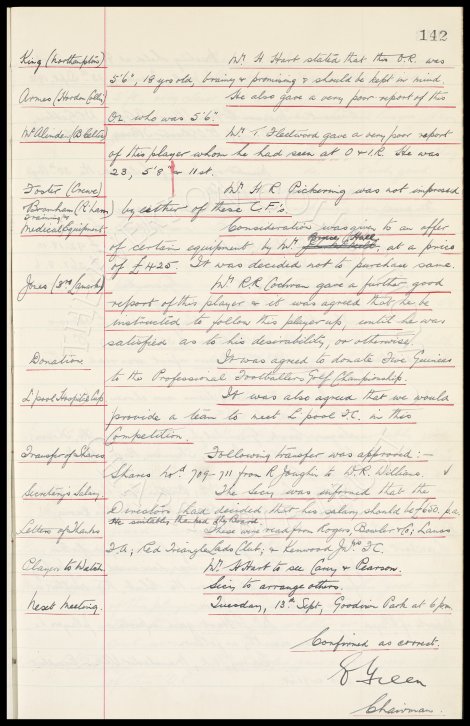 142
King (Northampton) Mr. H Hart stated that this O.R. was
5'6", 19 yrs old, brainy & promising & should be kept in mind.
Armes (Horden Colly) He also gave a very poor report of this
OL who was 5'6".
(B. Celtic) Mr. T. Fleetwood gave a very poor report
of this player whom he had seen at O & I.R. He was
23, 5'8" or 11 st.
Foster (Crewe) Mr. H. R. Pickering was not impressed
by either of these C.F's.
Training &
Medical Equipment Consideration was given to an offer
of certain equipment by Mr. at a price
of £425. It was decided not to purchase same.
Jones Mr. R.R. Cochran gave a further good
report of this player & it was agreed that he be
instructed to follow this player up, until he was
satisfied as to his desirability, or otherwise.
Donations It was agreed to donate Five Guineas
to the Professional Footballers Golf Championship.
L'pool Hospital Cup It was also agreed that we would
provide a team to meet L'pool F.C. in this
Competition.
Transfer of Shares Following transfer was approved:-
Shares Nos. 709-711 from R Joughin to D.R. Williams.
Secretary's Salary The Secy was informed that the
Directors had decided that his salary should be £650, p.a.
He suitably thanked the Board.
Letters of Thanks These were read from Rogers, Bowler & Co; Lancs
F.A; Red Triangle Lads Club; & Kenwood Jnrs F.C.
Players to Watch Mr. H Hart to see Carey & Pearson.
Secy to arrange others.
Next Meeting. Tuesday, 13th Sept, Goodison Park at 6 pm.
Confirmed as correct.
Green
Chairman.